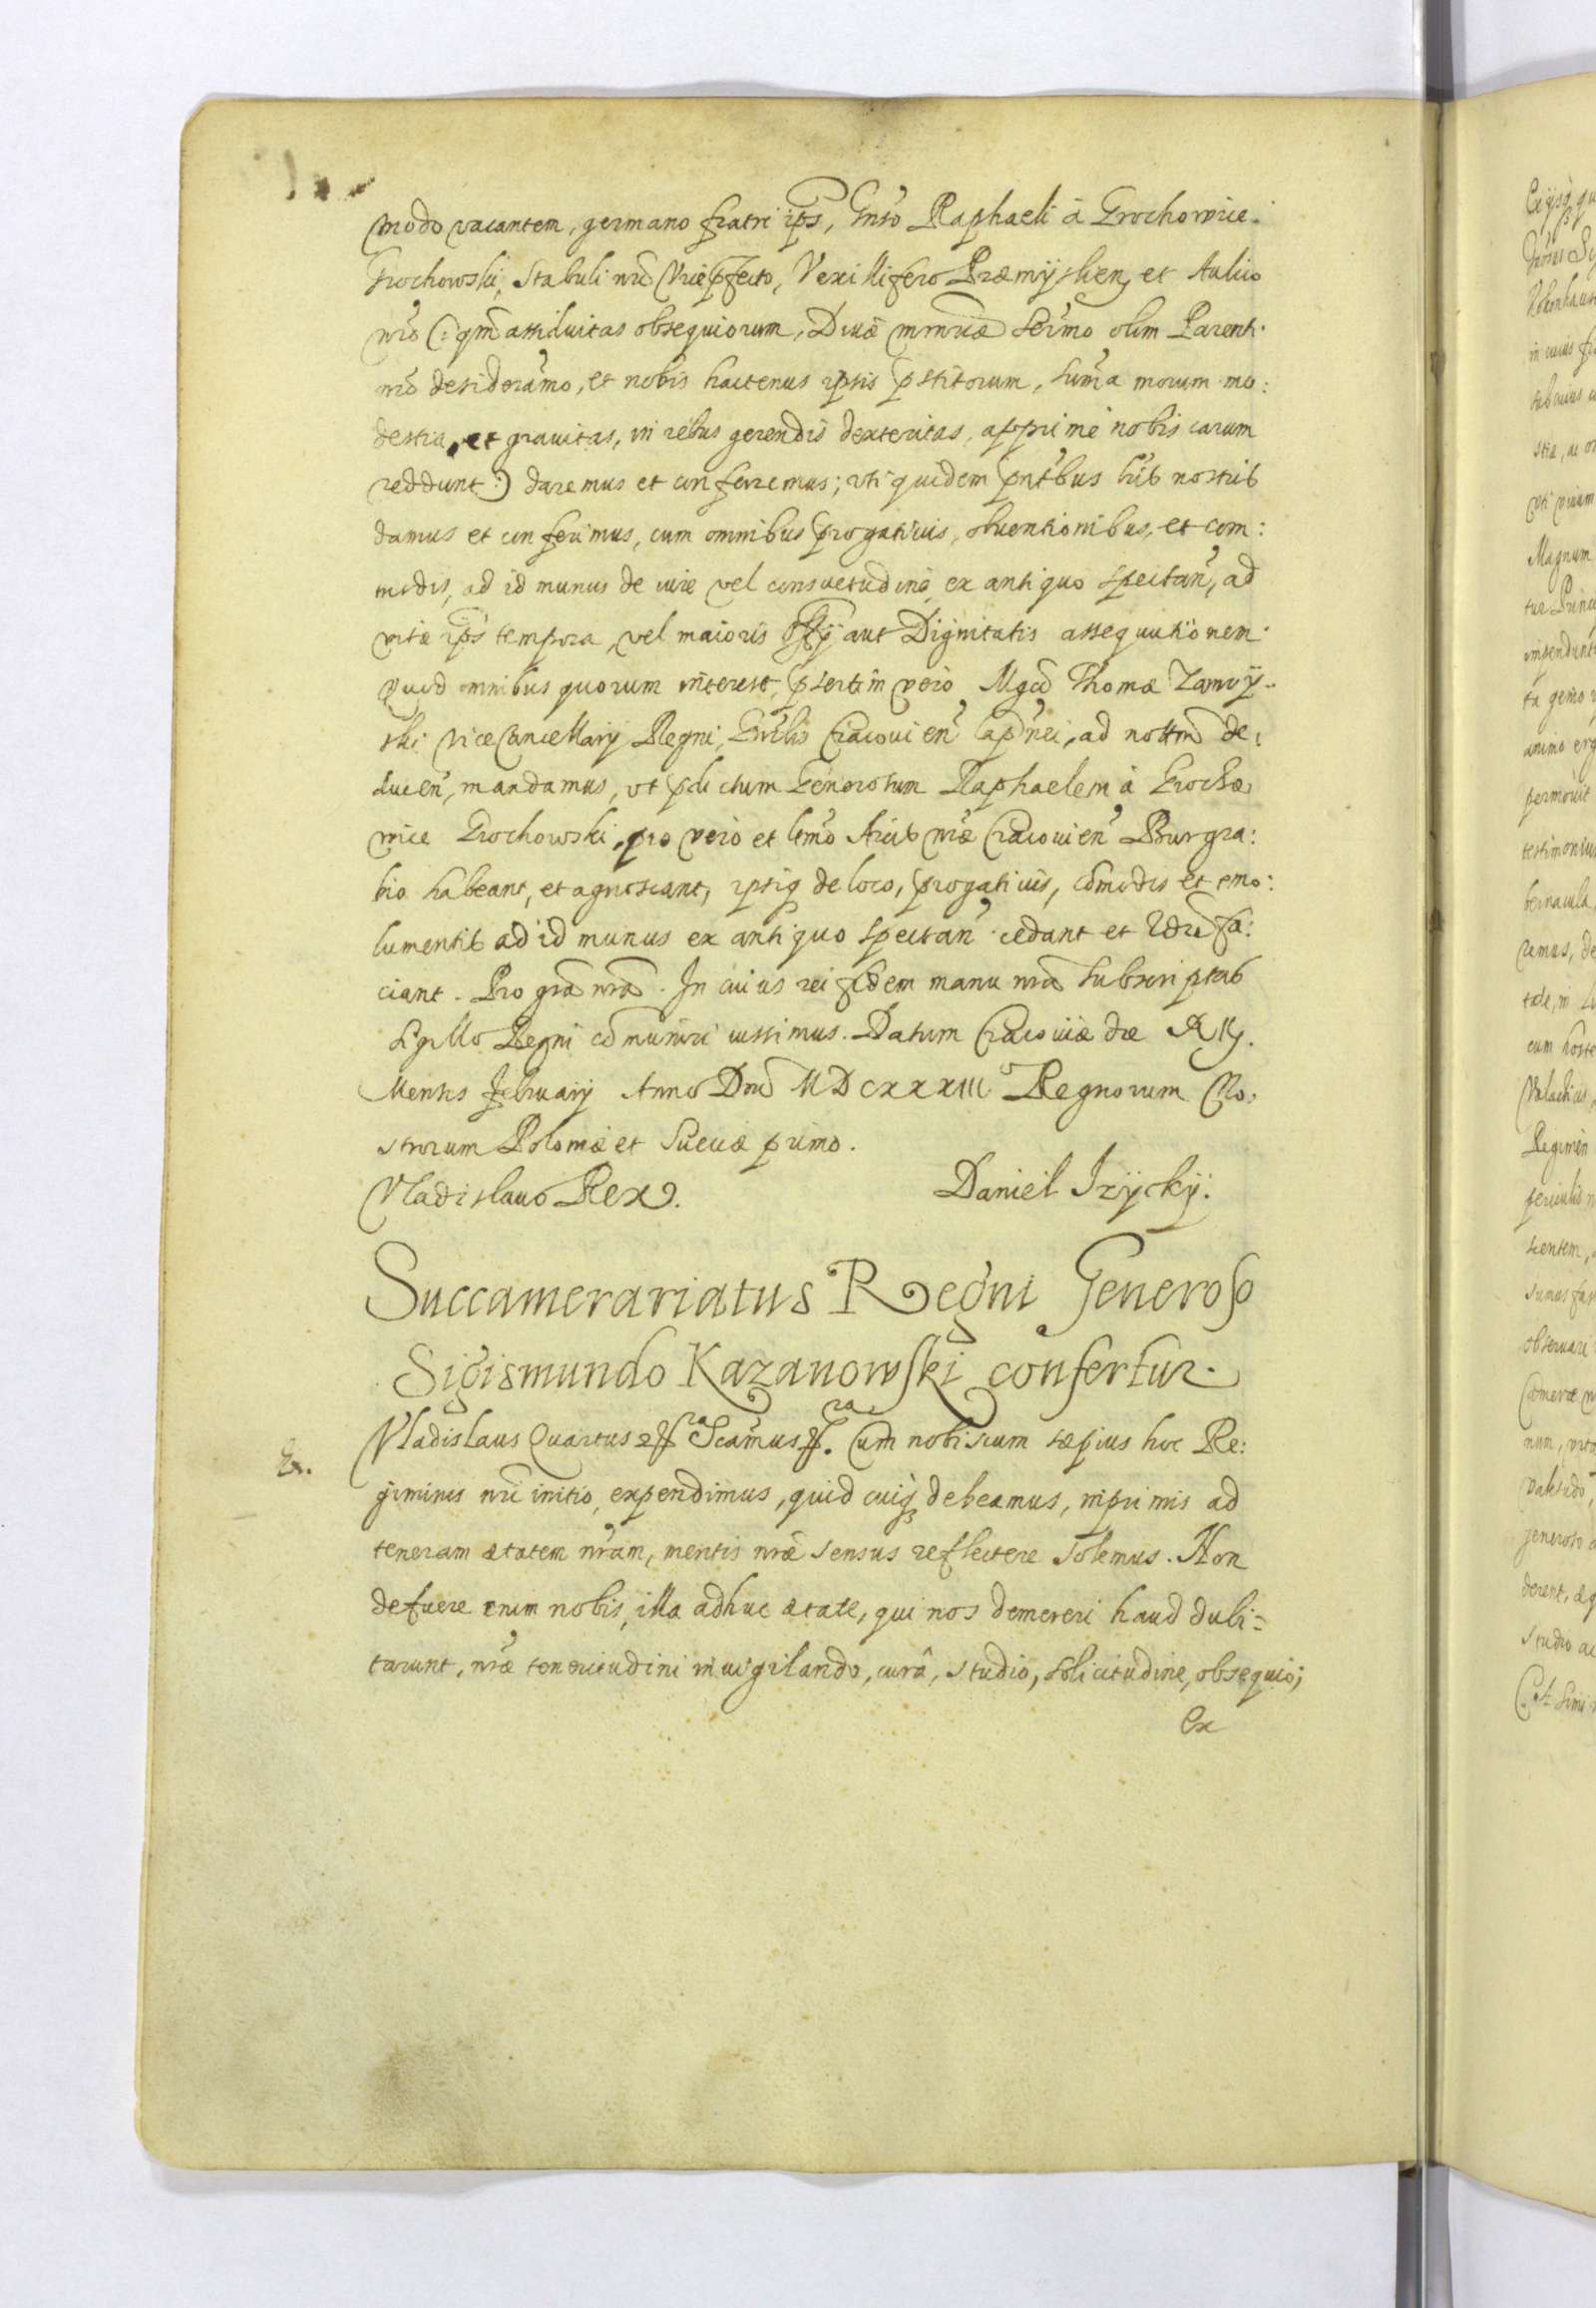 modo vacantem, germano fratri ips, Gnso Raphaeli à Grochowice
Grochowski, Stabuli nri Vicepfecto, Vexillifero Præmÿslien, et Aulico
nro (: qm assiduitas obsequiorum, Divæ Sermo olim Parenti
nro desideramo, et nobis hactenus ipsis pstitorum, suma morum mo:
destia, et grauitas, in rebus gerendis dexteritas, apprime nobis carum
reddunt :) daremus et conferremus; uti quidem pntbus lris nostris
damus et conferimus, cum omnibus progatiuis, obuentionibus, et com:
modis, ad id munus de iure vel consuetudine ex antiquo spectan, ad
vitæ ips tempora, vel maioris offÿ aut Dignitatis assequutionem.
Quod omnibus quorum interest, psertim vero Mgco Thomæ Zamoÿ:
ski ViceCancellarÿ Regni, Gnrlis Cracouien Capnei, ad nottm de:
ducen, mandamus, ut pdictum Generosum Raphaelem à Grocho:
wice Grochowski, pro vero et ltmo Arcis nræ Cracouien Burgra:
bio habeant, et agnoscant, ipsiq de loco, progatiuis, comodis et emo:
lumentis ad id munus ex antiquo spectan cedant et fa:
ciant. Pro gra nra. In cuius rei fidem manu nra subscriptas
Sigillo Regni comuniri iussimus. Datum Cracouiæ die
Mensis Februarÿ Anno Dni MDCXXXIII Regnorum No:
strorum Poloniæ et Sueciæ primo.
Vladislaus Rex. Daniel Izÿckÿ.
Succamerariatus Regni Generoso
Sigismundo Kazanowski confertur.
Vladislaus Quartus Scamus Cum nobiscum sæpius hoc Re:
giminis nri initio expendimus, quid cuiq debeamus, inprimis ad
teneram ætatem nram, mentis nræ sensus reflectere solemus. Non
defuere enim nobis, illa adhuc ætate, qui nos demereri haud dubi=
tarunt, nræ teneritudini inuigilando, curâ, studio, solicitudine, obsequio;
Ex